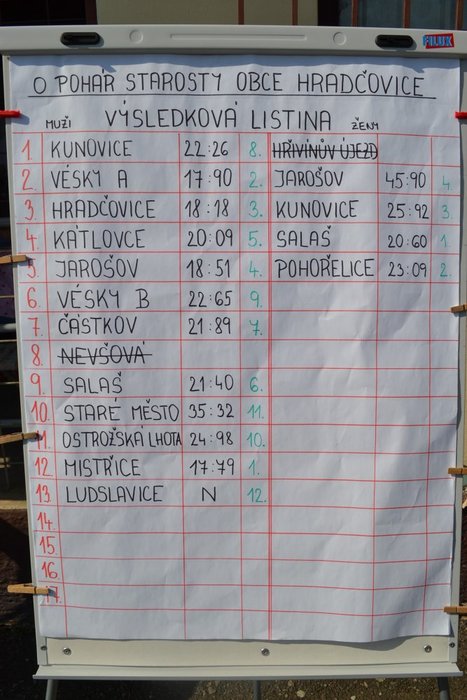 O POHÁR STAROSTY OBCE HRADČOVICE
MUŽI VÝSLEDKOVÁ LISTINA ŽENY
1. KUNOVICE 22:26 8. HŘIVÍNŮV ÚJEZD
2. VÉSKY A 17:90 2. JAROŠOV 45:90 4.
3. HRADČOVICE 18:18 3. KUNOVICE 25:92 3.
4. KÁTLOVCE 20:09 5. SALAŠ 20:60 1.
5. JAROŠOV 18:51 4. POHOŘELICE 23:09 2.
6. VÉSKY B 22:65 9.
7. ČÁSTKOV 21:89 7.
8. NEVŠOVÁ
9. SALAŠ 21:40 6.
10. STARÉ MĚSTO 35:32 11.
11. OSTROŽSKÁ LHOTA 24:98 10.
12. MISTŘICE 17:79 1.
13. LUDSLAVICE N 12.
14.
15.
16.
17.